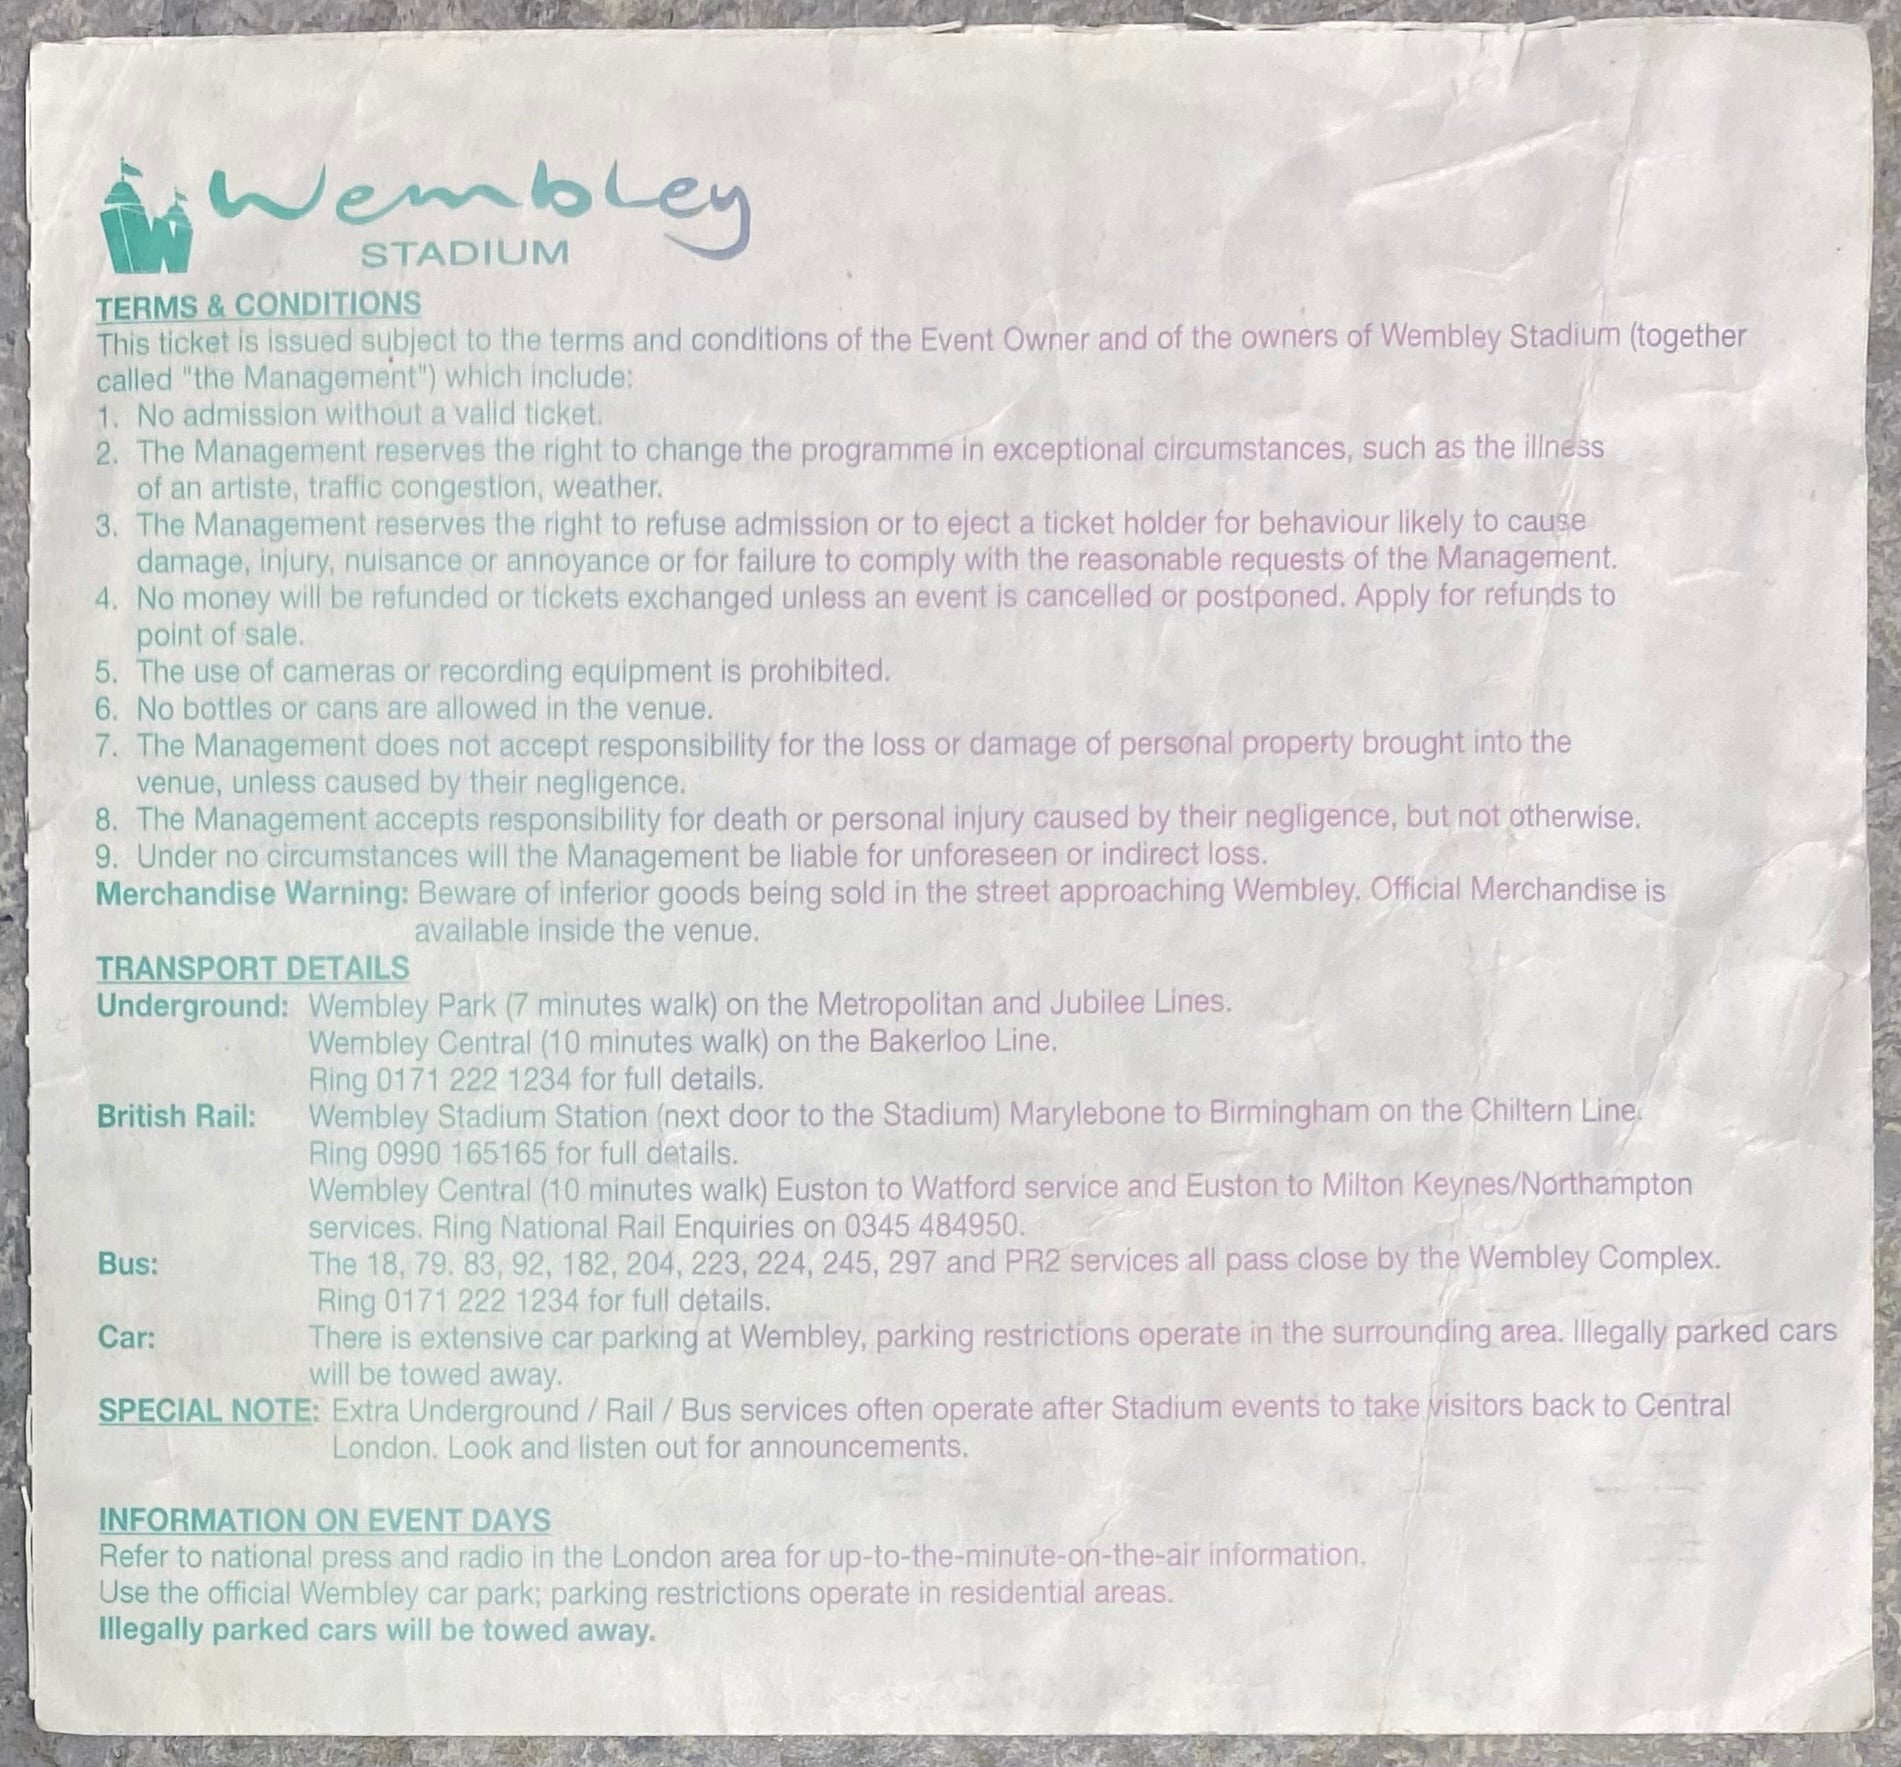 Wembley
STADIUM
TERMS & CONDITIONS
This ticket is issued subject to the terms and conditions of the Event Owner and of the owners of Wembley Stadium (together
called "the Management") which include:
1. No admission without a valid ticket.
2. The Management reserves the right to change the programme in exceptional circumstances, such as the illness
of an artiste, traffic congestion, weather.
3. The Management reserves the right to refuse admission or to eject a ticket holder for behaviour likely to cause
damage, injury, nuisance or annoyance or for failure to comply with the reasonable requests of the Management.
4. No money will be refunded or tickets exchanged unless an event is cancelled or postponed. Apply for refunds to
point of sale.
5. The use of cameras or recording equipment is prohibited.
6. No bottles or cans are allowed in the venue.
7. The Management does not accept responsibility for the loss or damage of personal property brought into the
venue, unless caused by their negligence.
8. The Management accepts responsibility for death or personal injury caused by their negligence, but not otherwise.
9. Under no circumstances will the Management be liable for unforeseen or indirect loss.
Merchandise Warning: Beware of inferior goods being sold in the street approaching Wembley. Official Merchandise is
available inside the venue.
TRANSPORT DETAILS
Underground: Wembley Park (7 minutes walk) on the Metropolitan and Jubilee Lines.
Wembley Central (10 minutes walk) on the Bakerloo Line.
Ring 0171 222 1234 for full details.
British Rail: Wembley Stadium Station (next door to the Stadium) Marylebone to Birmingham on the Chiltern Line.
Ring 0990 165165 for full details.
Wembley Central (10 minutes walk) Euston to Watford service and Euston to Milton Keynes/Northampton
services. Ring National Rail Enquiries on 0345 484950.
Bus: The 18, 79. 83, 92, 182, 204, 223, 224, 245, 297 and PR2 services all pass close by the Wembley Complex.
Ring 0171 222 1234 for full details.
Car: There is extensive car parking at Wembley, parking restrictions operate in the surrounding area. Illegally parked cars
will be towed away.
SPECIAL NOTE: Extra Underground / Rail / Bus services often operate after Stadium events to take visitors back to Central
London. Look and listen out for announcements.
INFORMATION ON EVENT DAYS
Refer to national press and radio in the London area for up-to-the-minute-on-the-air information.
Use the official Wembley car park; parking restrictions operate in residential areas.
Illegally parked cars will be towed away.